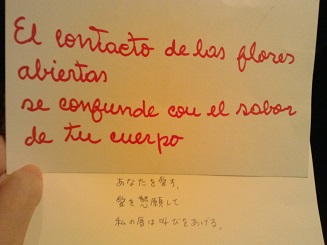 El contacto de las flores
abiertas
se confunde con el sabor
de tu cuerpo
あなたを愛す。
愛を懇願して
私の唇は叫びをあげる。